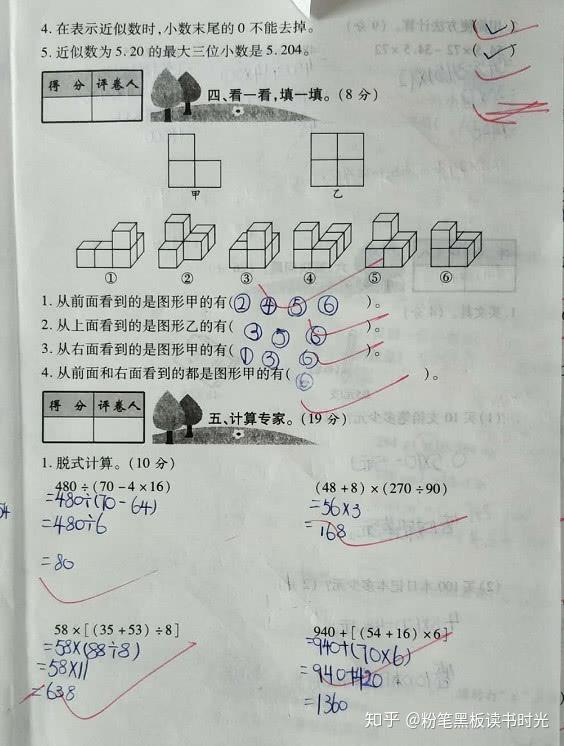 4. 在表示近似数时,小数末尾的0不能去掉。 (✓)
5. 近似数为5.20的最大三位小数是5.204。 (✓)
得 分 评卷人
四、看一看,填一填。(8分)
甲 乙
① ② ③ ④ ⑤ ⑥
1. 从前面看到的是图形甲的有(② ④ ⑤ ⑥)。
2. 从上面看到的是图形乙的有(③ ⑤ ⑥)。
3. 从右面看到的是图形甲的有(① ③ ⑥)。
4. 从前面和右面看到的都是图形甲的有(⑥)。
得 分 评卷人
五、计算专家。(19分)
1. 脱式计算。(10分)
480÷(70-4×16) (48+8)×(270÷90)
=480÷(70-64) =56×3
=480÷6 =168
=80
58×[(35+53)÷8] 940+[(54+16)×6]
=58×(88÷8) =940+(70×6)
=58×11 =940+420
=638 =1360
知乎 @粉笔黑板读书时光